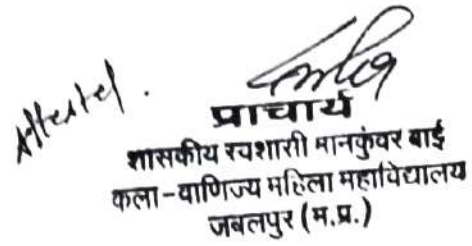 Attested.
प्राचार्य
शासकीय स्वशासी मानकुंवर बाई
कला-वाणिज्य महिला महाविद्यालय
जबलपुर (म.प्र.)